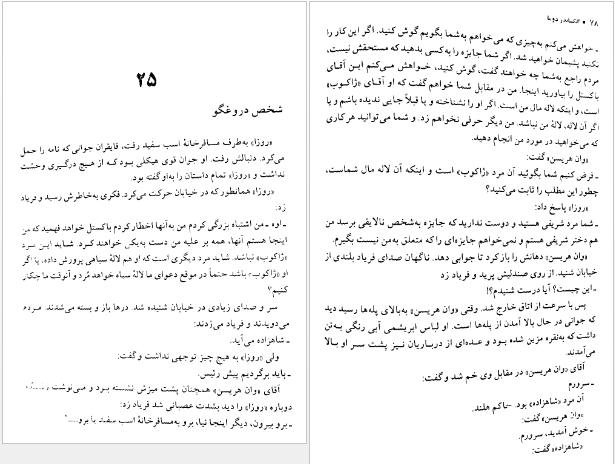 ۷۸ • الکساندر دوما
ـ خواهش می‌کنم به‌چیزی که می‌خواهم به‌شما بگویم گوش کنید. اگر این کار را
نکنید پشیمان خواهید شد. اگر شما جایزه را به‌کسی بدهید که مستحقش نیست،
مردم راجع به‌شما چه خواهند گفت، گوش کنید، خواهش می‌کنم این آقای
باکستل را بیاورید اینجا. من در مقابل شما خواهم گفت که او آقای «ژاکوب»
است، و اینکه لاله مال من است. اگر او را نشناخته و یا قبلاً جایی ندیده باشم و یا
اگر آن لاله، لالهٔ من نباشد. من دیگر حرفی نخواهم زد. و شما می‌توانید هرکاری
که می‌خواهید در مورد من انجام دهید.
«وان هریسن» گفت:
ـ فرض کنیم شما بگوئید آن مرد «ژاکوب» است و اینکه آن لاله مال شماست،
چطور این مطلب را ثابت می‌کنید؟
«روزا» پاسخ داد:
ـ شما مرد شریفی هستید و دوست ندارید که جایزه به‌شخص نالایقی برسد من
هم دختر شریفی هستم و نمی‌خواهم جایزه‌ای را که متعلق به‌من نیست بگیرم.
«وان هریسن» دهانش را باز کرد تا جوابی دهد. ناگهان صدای فریاد بلندی از
خیابان شنید. از روی صندلیش پرید و فریاد زد
ـ این چیست؟ آیا درست شنیدم؟!
پس با سرعت از اتاق خارج شد. وقتی «وان هریسن» به‌بالای پله‌ها رسید دید
که جوانی در حال بالا آمدن از پله‌ها است. او لباس ابریشمی آبی رنگی به‌تن
داشت که به‌نقره مزین شده بود و عده‌ای از درباریان نیز پشت سر او بالا
می‌آمدند
آقای «وان هریسن» در مقابل وی خم شد و گفت:
ـ سرورم
آن مرد «شاهزاده» بود. حاکم هلند.
«وان هریسن» گفت:
ـ خوش آمدید، سرورم.
«شاهزاده» گفت:
۲۵
شخص دروغگو
«روزا» به‌طرف مسافرخانهٔ اسب سفید رفت، قایقران جوانی که نامه را حمل
می‌کرد. دنبالش رفت. او جوان قوی هیکلی بود که از هیچ درگیری وحشت
نداشت و «روزا» تمام داستان را به‌او گفته بود.
«روزا» همانطور که در خیابان حرکت می‌کرد. فکری به‌خاطرش رسید و فریاد
زد.
ـ اوه ـ من اشتباه بزرگی کردم من به‌آنها اخطار کردم باکستل خواهد فهمید که من
اینجا هستم آنها، همه بر علیه من دست به‌یکی خواهند کرد. شاید این مرد
«ژاکوب» نباشد. شاید مرد دیگری است که او هم لالهٔ سیاهی پرورش داده، یا اگر
او «ژاکوب» باشد حتماً در موقع دعوای ما لالهٔ سیاه خواهد مُرد و آنوقت ما چکار
کنیم؟
سر و صدای زیادی در خیابان شنیده شد. درها باز و بسته می‌شدند. مردم
می‌دویدند و فریاد می‌زدند:
ـ شاهزاده می‌آید.
ولی «روزا» به هیچ چیز توجهی نداشت و گفت:
ـ باید برگردیم پیش رئیس.
آقای «وان هریسن» همچنان پشت میزش نشسته بود و می‌نوشت
دوباره «روزا» را دید بشدت عصبانی شد فریاد زد:
ـ برو بیرون، دیگر اینجا نیا، برو به‌مسافرخانهٔ اسب سفید یا برو....